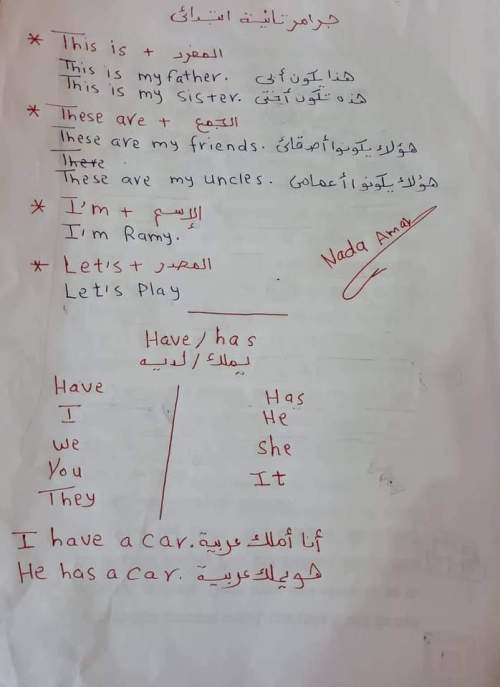 جرامر تانية ابتدائي
* This is + المفرد
This is my father. هذا يكون أبي
This is my sister. هذه تكون أختي
* These are + الجمع
These are my friends. هؤلاء يكونوا أصقائي
There
These are my uncles. هؤلاء يكونوا أعمامي
* I'm + الإسم
I'm Ramy.
Nada Amar
* Let's + المصدر
Let's Play
Have / has
يملك / لديه
Have Has
I He
we She
You It
They
I have a car. أنا أملك عربية
He has a car. هو يملك عربية